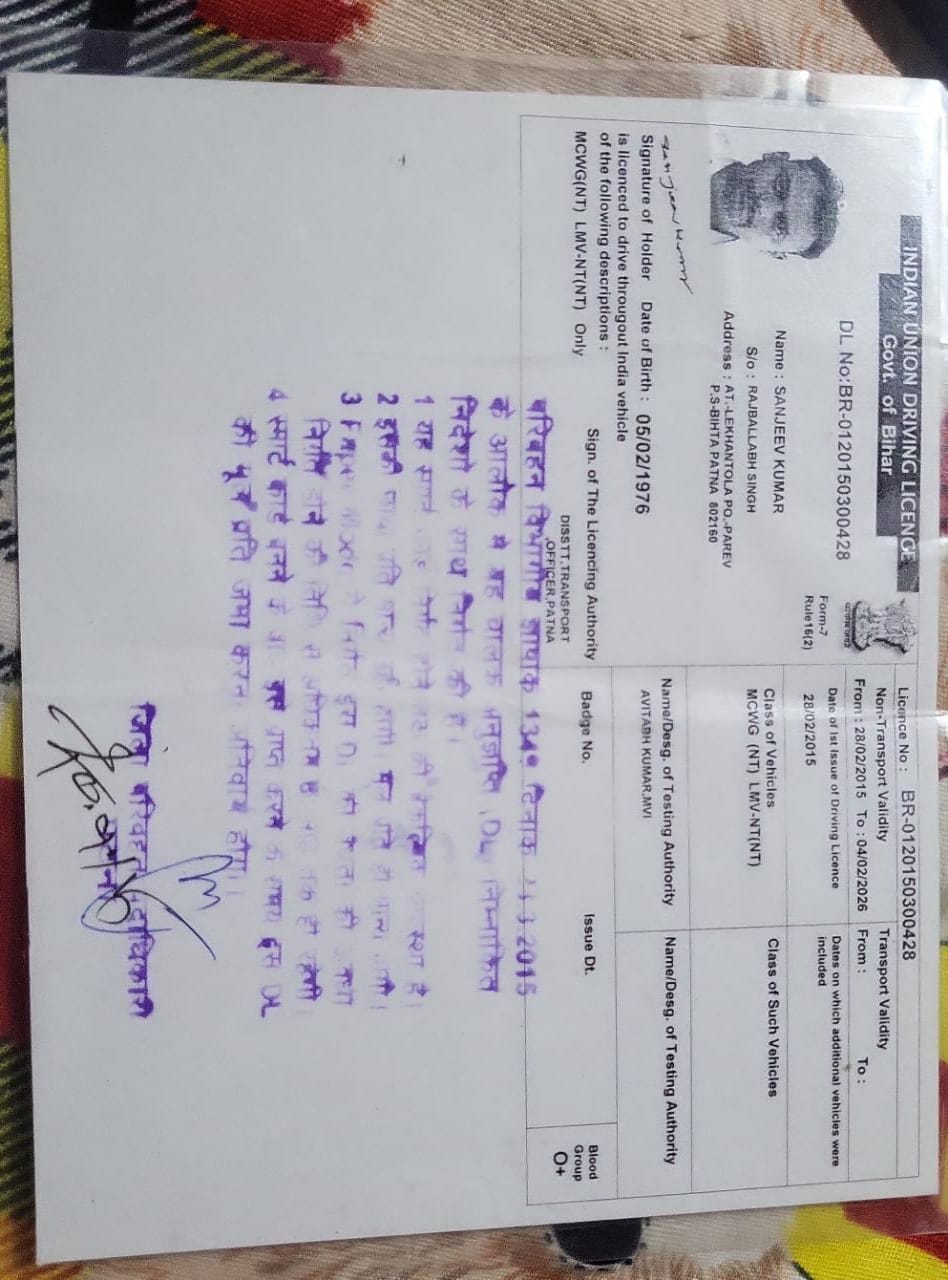 INDIAN UNION DRIVING LICENCE
Govt. of Bihar
DL No:BR-0120150300428
Form-7
Rule16(2)
Name : SANJEEV KUMAR
S/o : RAJBALLABH SINGH
Address : AT.-LEKHANTOLA PO.-PAREV
P.S-BIHTA PATNA 802160
Sanjeev Kumar
Signature of Holder Date of Birth : 05/02/1976
is licenced to drive througout India vehicle
of the following descriptions :
MCWG(NT) LMV-NT(NT) Only
Sign. of The Licencing Authority
DISSTT.TRANSPORT
OFFICER,PATNA
Licence No : BR-0120150300428
Non-Transport Validity
From : 28/02/2015 To : 04/02/2026
Transport Validity
From : To :
Date of Ist Issue of Driving Licence
28/02/2015
Dates on which additional vehicles were
included
Class of Vehicles
MCWG (NT) LMV-NT(NT)
Class of Such Vehicles
Name/Desg. of Testing Authority
AVITABH KUMAR,MVI
Name/Desg. of Testing Authority
Badge No.
Issue Dt.
Blood
Group
O+
परिवहन विभागीय ज्ञापांक 134 दिनांक 3.2015
के आलोक में यह चालक अनुज्ञप्ति निम्नांकित
निदेशों के साथ निर्गत की है।
1 यह स्मार्ट की है।
2 इसकी
3
निर्गत होने की तिथि से तक ही रहेगी।
4 स्मार्ट कार्ड बनने के प्राप्त करने के समय इस DL
की मूल प्रति जमा करना अनिवार्य होगा।
जिला परिवहन पदाधिकारी